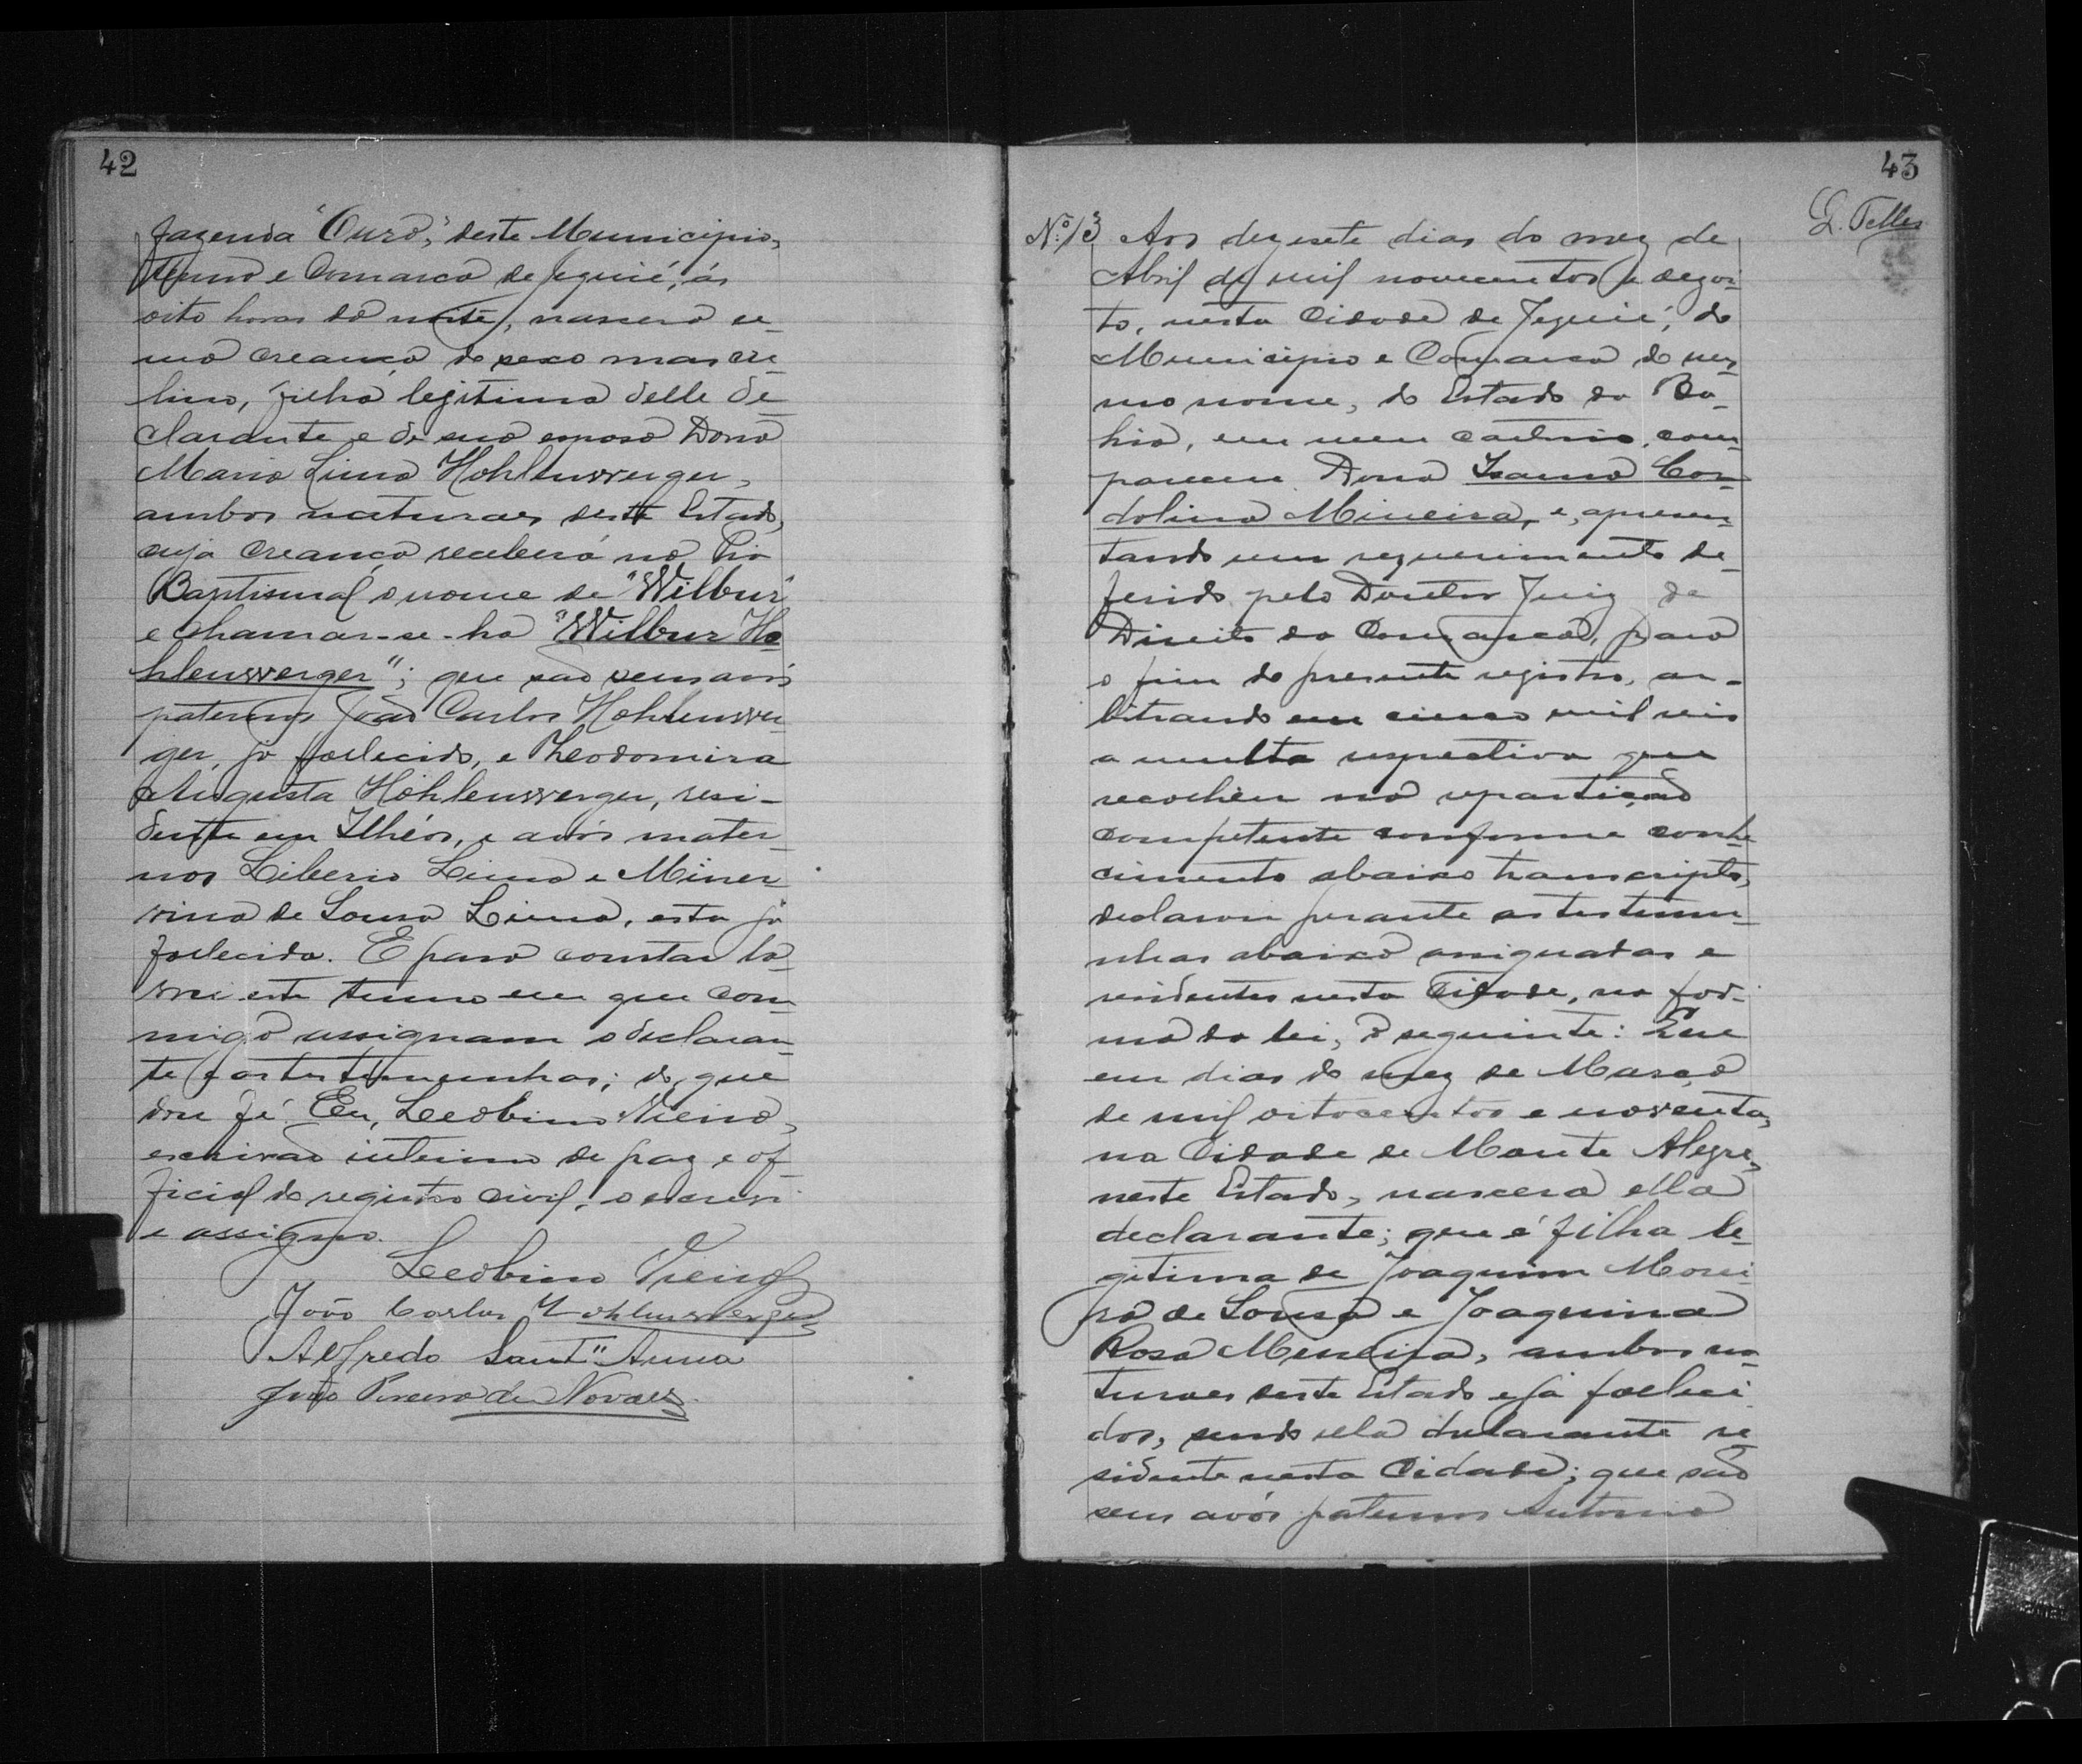 42
fazenda "Ouro," deste Municipio,
termo e Comarca de Jequié, ás
oito horas da noite, nascera u-
ma creança do sexo mascu-
lino, filha legitima delle de-
clarante e de sua esposa Dona
Maria Lima Hohlenwerger,
ambos naturaes deste Estado,
cuja creança receberá na Pia
Baptismal o nome de "Wilbur"
e chamar-se-ha "Wilbur Ho-
hlenwerger"; que são seus avós
paternos João Carlos Hohlenwer-
ger, já fallecido, e Theodomira
Augusta Hohlenwerger, resi-
dente em Ilhéos, e avós mater-
nos Liberio Lima e Miner-
vina de Sousa Lima, esta já
fallecida. E para constar la-
vrei este termo em que com-
migo assignam o declaran-
te e as testemunhas; do que
dou fé. Eu, Leobino Vieira,
escrivão interino de paz e of-
ficial do registro civil, o escrevi
e assigno.
Leobino Vieira
João Carlos Hohlenwerger
Alfredo Sant"Anna
João Pereira de Novaes
43
G. Telles
Nº 13 Aos dezesete dias do mez de
Abril de mil novecentos e dezoi-
to, nesta Cidade de Jequié, do
Municipio e Comarca do mes-
mo nome, do Estado da Ba-
hia, em meu cartorio, com-
pareceu Dona Isaura Con-
dolina Mineira, e, apresen-
tando um requerimento de-
ferido pelo Doutor Juiz de
Direito da Comarca, para
o fim do presente registro, ar-
bitrando em cinco mil reis
a multa respectiva que
recolheu na repartição
competente conforme conhe-
cimento abaixo transcripto,
declarou perante as testemu-
nhas abaixo assignadas e
residentes nesta Cidade, na for-
ma da lei, o seguinte: Que
em dias do mez de Março
de mil oitocentos e noventa,
na Cidade de Monte Alegre,
neste Estado, nascera ella
declarante; que é filha le-
gitima de Joaquim Morei-
ra de Sousa e Joaquina
Rosa Mineira, ambos na-
turaes deste Estado e já falleci-
dos, sendo ella declarante re-
sidente nesta Cidade; que são
seus avós paternos Antonio